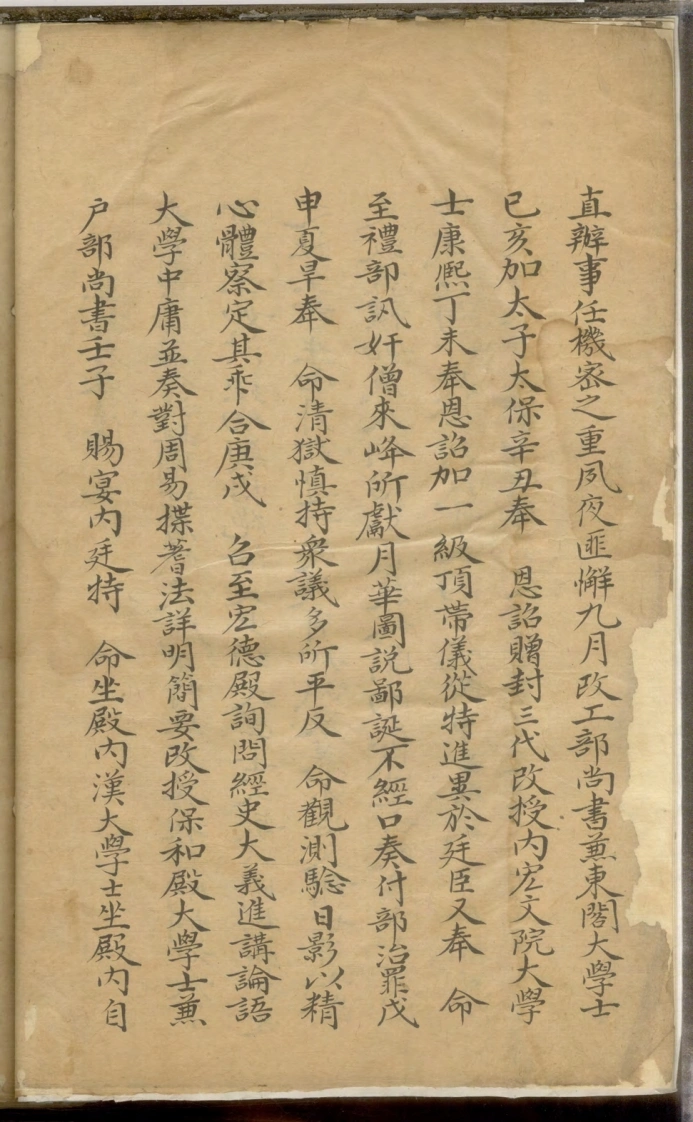 直辦事任機密之重夙夜匪懈九月改工部尚書兼東閣大學士
已亥加太子太保辛丑奉　恩詔贈封三代改授内宏文院大學
士康熈丁未奉恩詔加一級頂帶儀從特進異於廷臣又奉　命
至禮部訊奸僧來峰所獻月華圖説鄙誕不經口奏付部治罪戊
申夏旱奉　命清獄慎持衆議多所平反　命觀測驗日影以精
心體察定其乖合庚戌　召至宏德殿詢問經史大義進講論語
大學中庸並奏對周易揲蓍法詳明簡要改授保和殿大學士兼
户部尚書壬子　賜宴内廷特　命坐殿内漢大學士坐殿内自